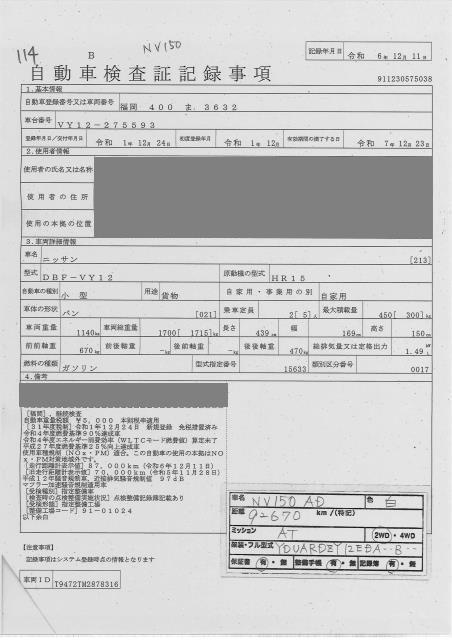 114
B
NV150
記録年月日 令和 6年 12月 11日
自動車検査証記録事項
911230575038
1.基本情報
自動車登録番号又は車両番号 福岡 400 ま 3632
車台番号 VY12-275593
登録年月日/交付年月日 令和 1年 12月 24日 初度登録年月 令和 1年 12月 有効期間の満了する日 令和 7年 12月 23日
2.使用者情報
使用者の氏名又は名称
使用者の住所
使用の本拠の位置
3.車両詳細情報
車名 ニッサン [213]
型式 DBF-VY12 原動機の型式 HR15
自動車の種別 小型 用途 貨物 自家用・事業用の別 自家用
車体の形状 バン [021] 乗車定員 2[ 5]人 最大積載量 450[ 300]kg
車両重量 1140kg 車両総重量 1700[ 1715]kg 長さ 439cm 幅 169cm 高さ 150cm
前前軸重 670kg 前後軸重 -kg 後前軸重 -kg 後後軸重 470kg 総排気量又は定格出力 1.49
燃料の種類 ガソリン 型式指定番号 15633 類別区分番号 0017
4.備考
[福岡],継続検査
自動車重量税額 ¥5,000 本則税率適用
[31年度税制]令和1年12月24日 新規登録 免税措置済み
令和4年度燃費基準90%達成車
令和4年度エネルギー消費効率(WLTCモード燃費値)算定未了
平成27年度燃費基準25%向上達成車
使用車種規制(NOx・PM)適合、この自動車の使用の本拠はNO
x・PM対策地域外です。
[走行距離計表示値]87,000km(令和6年12月11日)
[旧走行距離計表示値]70,000km(令和5年11月28日)
平成12年騒音規制車、近接排気騒音規制値 97dB
マフラー加速騒音規制適用車
[受検種別]指定整備車
[検査時の点検整備実施状況]点検整備記録簿記載あり
[受検形態]指定整備工場
[整備工場コード]91-01024
以下余白
【注意事項】
記録事項はシステム登録時点の情報となります
車両ID T9472TM2878316
車名 NV150 AD 色 白
距離 92670 km/(特記)
ミッション AT 2WD・4WD
架装・フル型式
保証書 有・無 整備手帳 有・無 記録簿 有・無